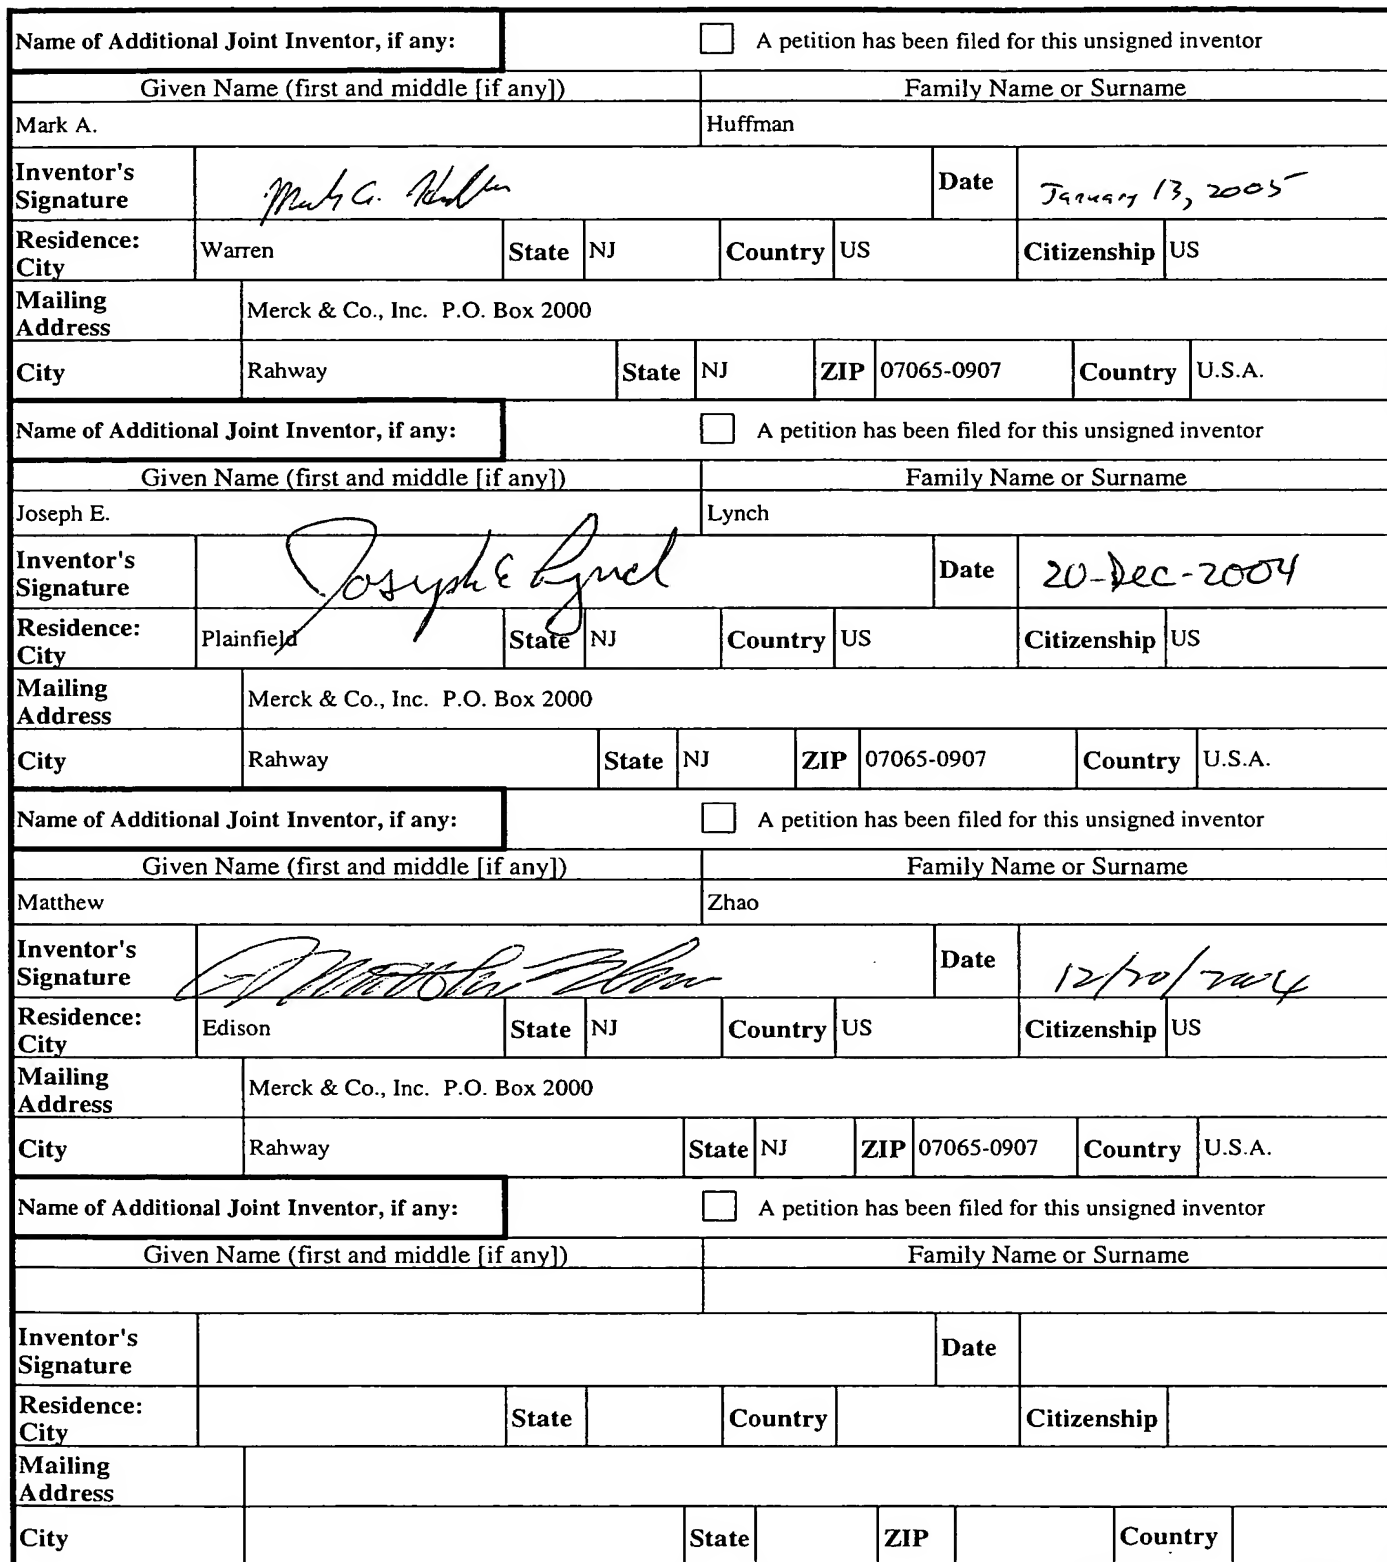 Name of Additional Joint Inventor, if any: A petition has been filed for this unsigned inventor
Given Name (first and middle [if any]) Family Name or Surname
Mark A. Huffman
Inventor's
Signature Mark A. Huffman Date January 13, 2005
Residence:
City Warren State NJ Country US Citizenship US
Mailing
Address Merck & Co., Inc. P.O. Box 2000
City Rahway State NJ ZIP 07065-0907 Country U.S.A.
Name of Additional Joint Inventor, if any: A petition has been filed for this unsigned inventor
Given Name (first and middle [if any]) Family Name or Surname
Joseph E. Lynch
Inventor's
Signature Joseph E Lynch Date 20-Dec-2004
Residence:
City Plainfield State NJ Country US Citizenship US
Mailing
Address Merck & Co., Inc. P.O. Box 2000
City Rahway State NJ ZIP 07065-0907 Country U.S.A.
Name of Additional Joint Inventor, if any: A petition has been filed for this unsigned inventor
Given Name (first and middle [if any]) Family Name or Surname
Matthew Zhao
Inventor's
Signature Date 12/20/2004
Residence:
City Edison State NJ Country US Citizenship US
Mailing
Address Merck & Co., Inc. P.O. Box 2000
City Rahway State NJ ZIP 07065-0907 Country U.S.A.
Name of Additional Joint Inventor, if any: A petition has been filed for this unsigned inventor
Given Name (first and middle [if any]) Family Name or Surname
Inventor's
Signature Date
Residence:
City State Country Citizenship
Mailing
Address
City State ZIP Country